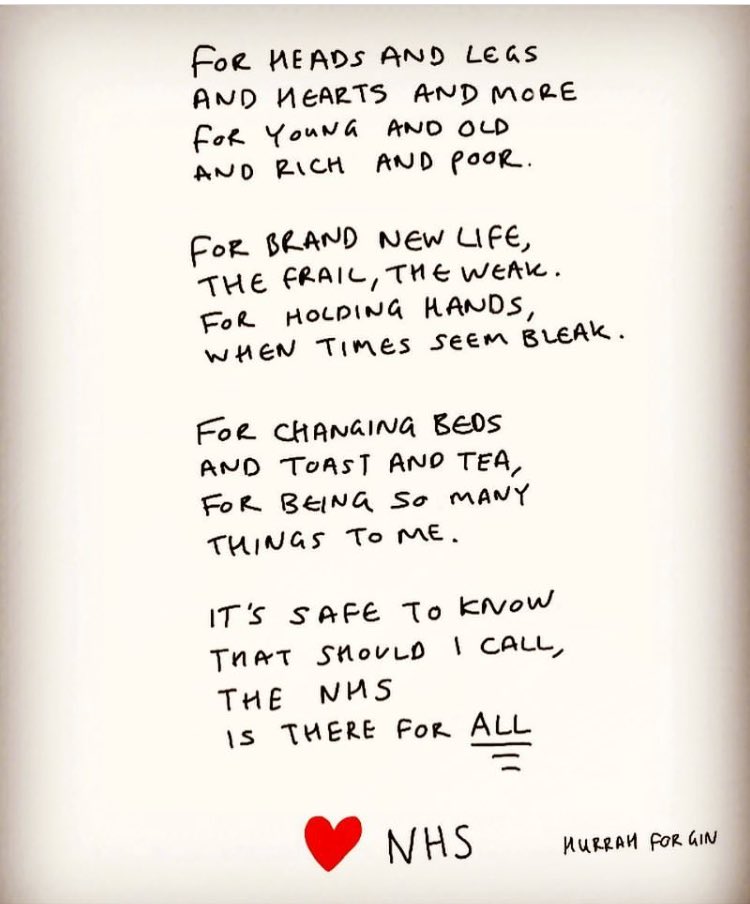 FOR HEADS AND LEGS
AND HEARTS AND MORE
FOR YOUNG AND OLD
AND RICH AND POOR.
FOR BRAND NEW LIFE,
THE FRAIL, THE WEAK.
FOR HOLDING HANDS,
WHEN TIMES SEEM BLEAK.
FOR CHANGING BEDS
AND TOAST AND TEA,
FOR BEING SO MANY
THINGS TO ME.
IT'S SAFE TO KNOW
THAT SHOULD I CALL,
THE NHS
IS THERE FOR ALL
NHS
HURRAH FOR GIN